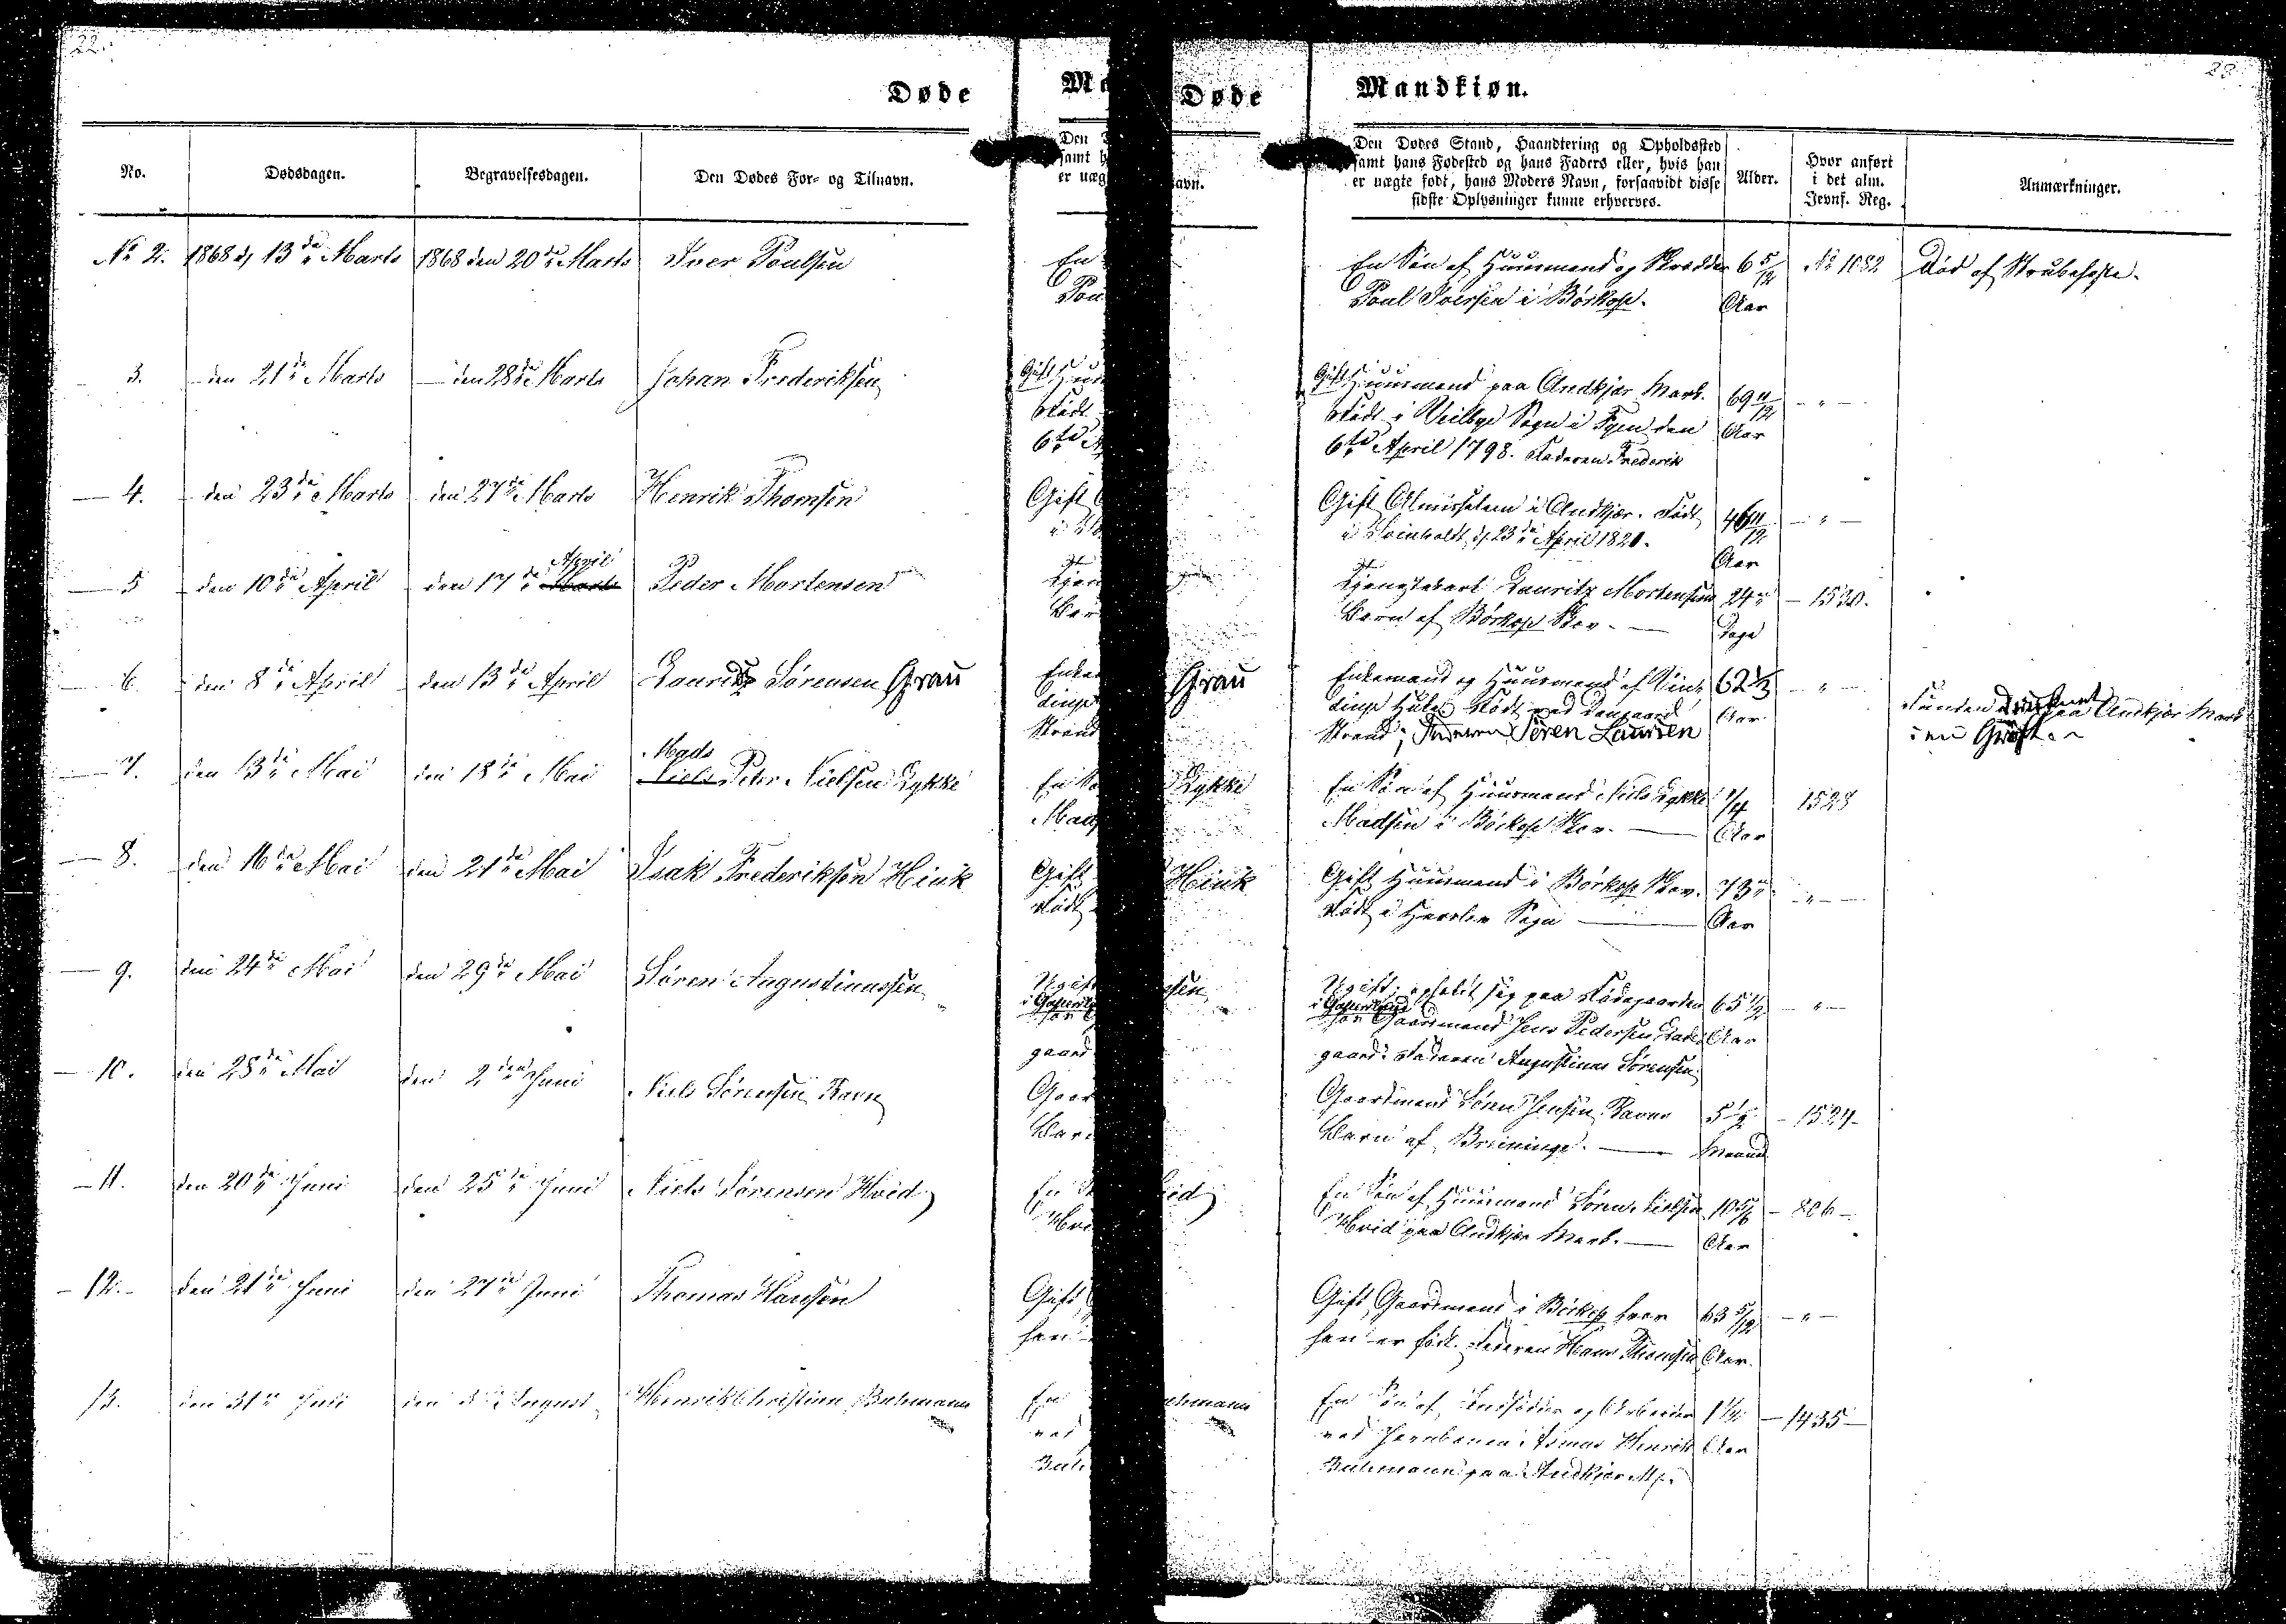 22.
Døde
No.
Dødsdagen.
Begravelsesdagen.
Den Dødes For- og Tilnavn.
№ 2. 1868 d. 13de Marts 1868 den 20de Marts Iver Poulsen
3. den 21de Marts den 28de Marts Johan Frederiksen
4. den 23de Marts den 27de Marts Henrik Thomsen
April
5 den 10de April den 17de Marts Peder Mortensen
6 den 8de April den 13de April Lauritz Sørensen Grau
Mads
7. den 13de Mai den 18de Mai Niels Peter Nielsen Lykke
8. den 16de Mai den 21de Mai Isak Frederiksen Hink
9. den 24de Mai den 29de Mai Søren Augustinussen
10. den 28de Mai den 2den Juni Niels Sørensen Ravn
11. den 20de Juni den 25de Juni Niels Sørensen Hvid
12. den 21de Juni den 27de Juni Thomas Hansen
13. den 31te Juli den August Henrik Christian Buhmann
23
Døde Mandkiøn.
Den Dødes Stand, Haandtering og Opholdssted
samt hans Fødested og hans Faders eller, hvis han
er uægte født, hans Moders Navn, forsaavidt disse
sidste Oplysninger kunne erhverves.
Alder.
Hvor anført
i det alm.
Jevnf. Reg.
Anmærkninger.
En Søn af Huusmand og Skrædder 6 5/12 № 1082 Død af Strubehoste.
Poul Iversen i Børkop. Aar
Gift Huusmand paa Andkjær Mark. 69 11/12 - " -
Født i Veilbye Sogn i Fyen den Aar
6te April 1798. Faderen Frederik
Gift Almisselem i Andkjær. Født 46 11/12 - " -
i Svinholdt d. 23de April 1821. Aar
Tjenestekarl Lauritz Mortensens 24 - 1530.
Barn af Børkop Skov. Dage
Enkemand og Huusmand af Vin- 62 1/3 - " -
dinge Født ved
Aar
Strand; Faderen Søren Laursen
Funden paa Andkjær Mark
i en Grøft.
En Søn af Huusmand Niels Lykke 1/4 1523
Madsen i Børkop Skov. Aar
Gift Huusmand i Børkop Skov. 73 - " -
Født i Herslev Sogn Aar
Ugift; opholdt sig paa Fødegaarden 65 1/2 - " -
i Gauerslund
hos Gaardmand Jens Pedersen Aar
gaard. Faderen Augustinus Sørensen
Gaardmand Søren Jensen Ravns 5 1/2 - 1524 -
Barn af Breininge. Maaned
En Søn af Huusmand Søren Nielsen 10 5/6 - 806 -
Hvid paa Andkjær Mark. Aar
Gift Gaardmand i Børkop hvor 63 5/12 - " -
han er født. Faderen Hans Thomsen Aar.
En Søn af Indsidder og Arbeider 1 1/4 - 1435 -
ved Jernbanen Asmus Henrik Aar
Buhmann paa Andkjær M.